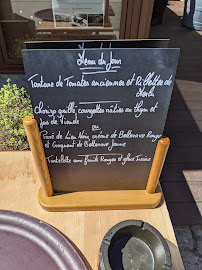 Menu du Jour
Tartare de Tomates anciennes et Rillettes de
Merlu
Chorizo grillé, courgettes rôties au thym et
Jus de Viande
ou
Pavé de Lieu Noir crème de Betterave Rouge
et Croquant de Betterave Jaune
Tartelette aux fruits Rouges et glace